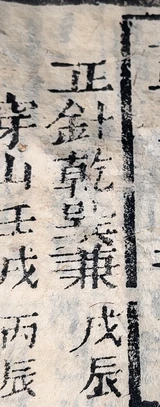 正針乾巽兼戌辰
穿山壬戌丙辰